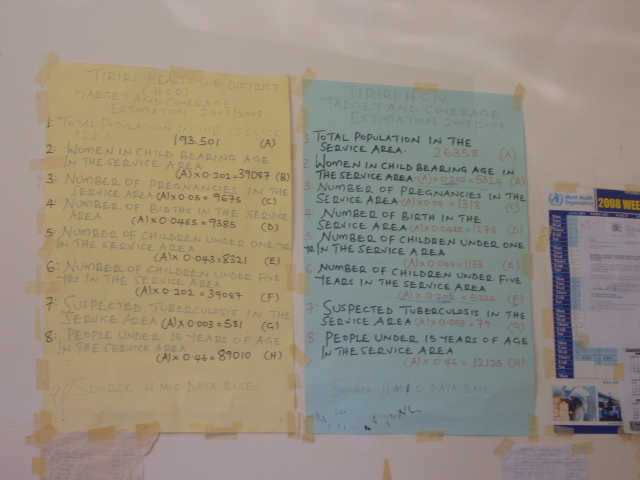 TIRIRI HEALTH SUB-DISTRICT
(H.S.D)
TARGET AND COVERAGE
ESTIMATION 2007/2008
1: TOTAL POPULATION IN THE SERVICE
AREA
193.501 (A)
2: WOMEN IN CHILD BEARING AGE
IN THE SERVICE AREA
(A)X0.202=39087 (B)
3: NUMBER OF PREGNANCIES IN THE
SERVICE AREA (A)X0.05=9675 (C)
4: NUMBER OF BIRTHS IN THE SERVICE
AREA (A)X0.0485=9385 (D)
5: NUMBER OF CHILDREN UNDER ONE YR
IN THE SERVICE AREA
(A)X0.043=8321 (E)
6: NUMBER OF CHILDREN UNDER FIVE
YRS IN THE SERVICE AREA
(A)X0.202=39087 (F)
7: SUSPECTED TUBERCULOSIS IN THE
SERVICE AREA (A)X0.003=581 (G)
8: PEOPLE UNDER 15 YEARS OF AGE
IN THE SERVICE AREA
(A)X0.46=89010 (H)
SOURCE HMIS DATA-BASE
TIRIRI H.C IV
TARGET AND COVERAGE
ESTIMATION 2007/2008
1 TOTAL POPULATION IN THE
SERVICE AREA. 26358 (A)
2 WOMEN IN CHILD BEARING AGE IN
THE SERVICE AREA (A)X0.202=5324 (B)
3: NUMBER OF PREGNANCIES IN THE
SERVICE AREA (A)X0.05=1318 (C)
4: NUMBER OF BIRTH IN THE
SERVICE AREA (A)X0.0485=1278 (D)
5: NUMBER OF CHILDREN UNDER ONE
YR IN THE SERVICE AREA
(A)X0.043=1133 (E)
6: NUMBER OF CHILDREN UNDER FIVE
YEARS IN THE SERVICE AREA
(A)X0.202=5324 (F)
7: SUSPECTED TUBERCULOSIS IN THE
SERVICE AREA (A)X0.003=79 (G)
8: PEOPLE UNDER 15 YEARS OF AGE
IN THE SERVICE AREA
(A)X0.46=12125 (H)
SOURCE HMIS DATA-BASE
World Health
Organization
2008 WEE